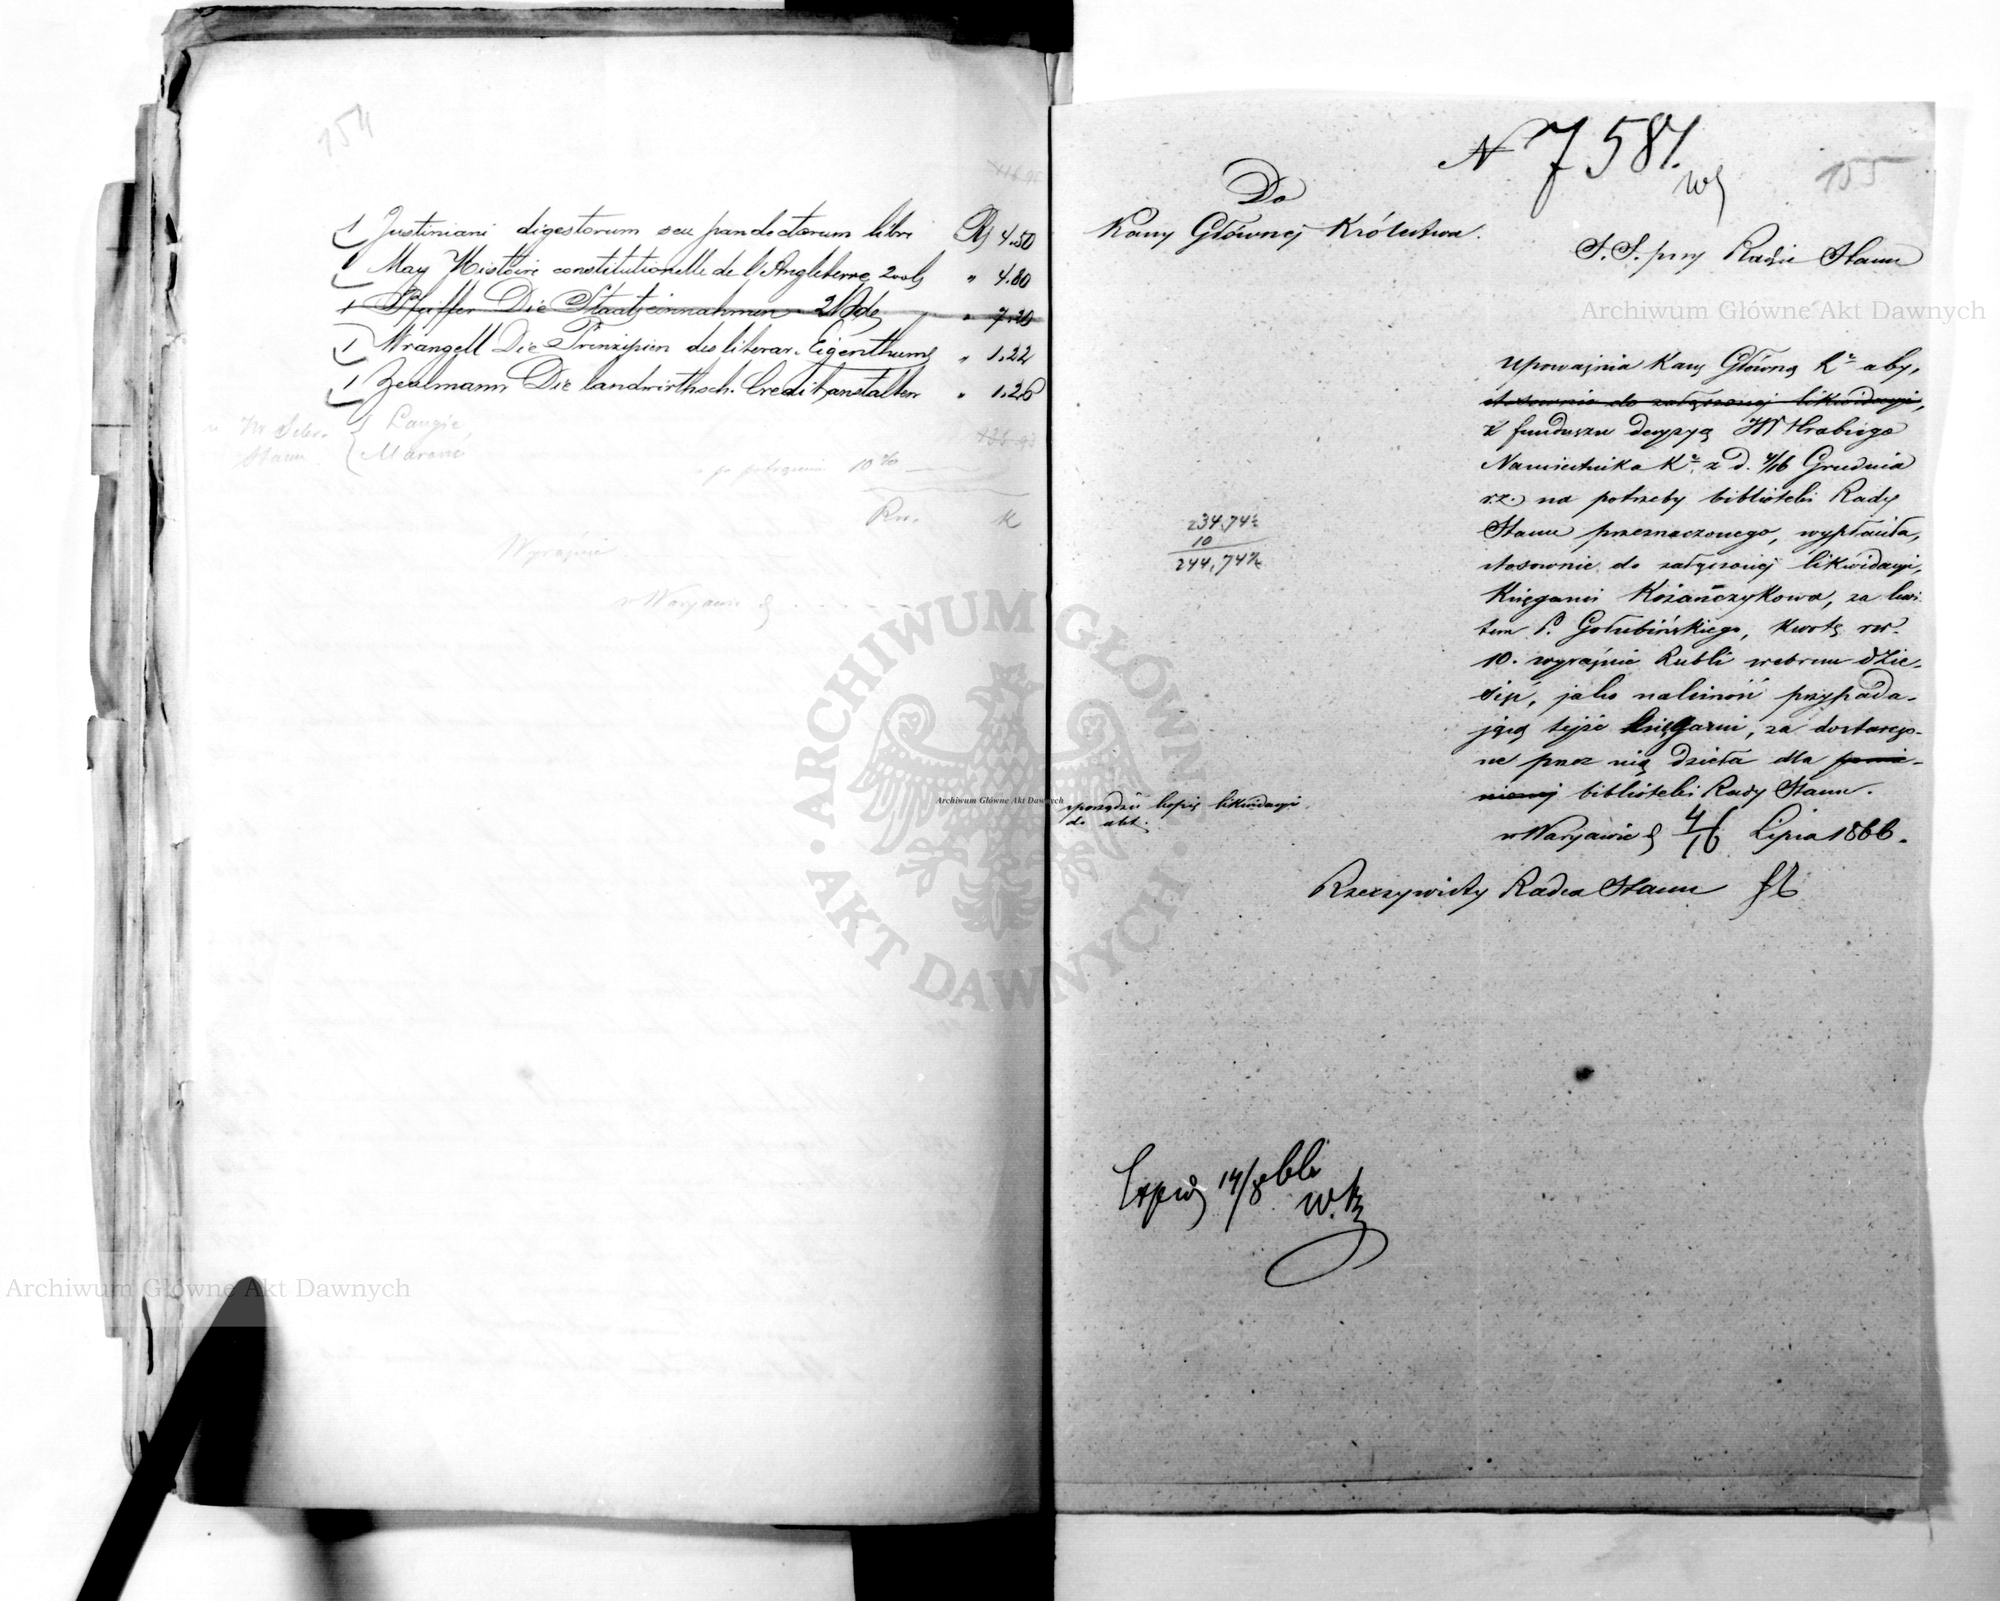 154
116.95
1 Justiniani digestorum seu pandectarum libri Rs 4.50
1 May Histoire constitutionelle de l'Angleterre 2 vols " 4.80
1 Pfeiffer Die Staatseinnahmen 2 Bde " 7.20
1 Wrangell Die Prinzipien des literar. Eigenthums " 1.22
1 Zeelmann Die landwirthsch. Creditanstalten " 1.26
Langie
Stanu Marcin
po potrąceniu 10 %
Rs. K
Wyraźnie
w Warszawie d
N 7581.
155
Do
Kassy Głównej Królestwa.
S. S. przy Radzie Stanu
Upoważnia Kassę Główną Kr. aby,
stosownie do załączonej likwidacyi,
z funduszu decyzyą JW Hrabiego
Namiestnika Kr. z d. 4/16 Grudnia
r.z. na potrzeby biblioteki Rady
Stanu przeznaczonego, wypłaciła,
stosownie do załączonej likwidacyi,
Księgarni Kożańczykowa, za kwi-
tem P. Gołubińskiego, kwotę rsr.
10. wyraźnie Rubli srebrem dzie-
sięć, jako należność przypada-
jącą tejże księgarni, za dostarczo-
ne przez nią dzieła dla pomie-
nionej biblioteki Rady Stanu.
w Warszawie d 4/16 Lipca 1866.
Rzeczywisty Radca Stanu
234,74½
10
244,74½
sporządzić kopię likwidacyi
do akt.
Exped 14/8 66
W.K
Archiwum Główne Akt Dawnych
Archiwum Główne Akt Dawnych
Archiwum Główne Akt Dawnych
ARCHIWUM GŁÓWNE · AKT DAWNYCH ·